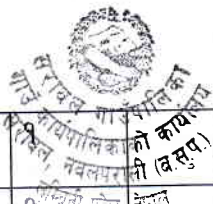 सरावल गाउँपालिका
गाउँ कार्यपालिकाको कार्यालय
सरावल, नवलपरासी (ब.सु.प.)
नेपाल
१